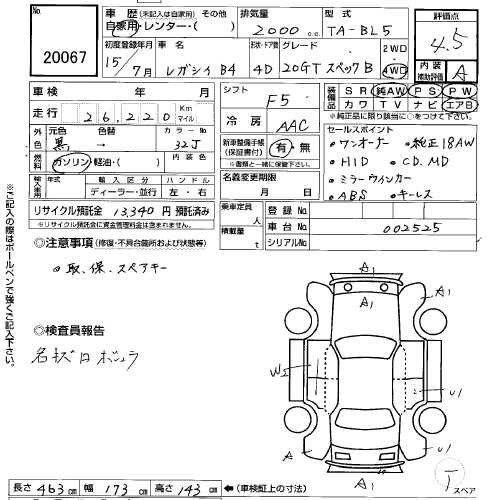 No.
20067
車歴 (未記入は自家用) その他
自家用・レンター・( )
排気量
2000 c.c.
型式
TA-BL5
評価点
4.5
内装補助評価 A
初度登録年月
15/7月
車名
レガシィ B4
形状・ドア数
4D
グレード
20GT スペックB
2WD
4WD
車検 年 月
走行 26,220 Km マイル
シフト
F5
装備品
SR 純AW PS PW
カワ TV ナビ エアB
※純正品に限り該当欄に○をつけて下さい。
外色 元色 黒 色替 → カラーNo 32J
冷房
AAC
燃料 ガソリン・軽油・( ) 内装色
新車整備手帳(保証書付) 有・無
※書類と一緒に保管下さい。
セールスポイント
・ワンオーナー ・純正18AW
・HID ・CD.MD
・ミラーウインカー
・ABS ・キーレス
輸入車用 年式 輸入区分 ハンドル
ディーラー・並行 左・右
名義変更期限
月 日
リサイクル預託金 13,340 円 預託済み
※リサイクル預託金に資金管理料金は含まれません。
乗車定員 人
積載量 t
登録No
車台No 002525
シリアルNo
◎注意事項 (修復・不具合箇所および状態等)
・取、保、スペアキー
◎検査員報告
※ご記入の際はボールペンで強くご記入下さい。
A1
A1
A1
W1
U1
A
U1
A1
T
スペア
長さ 463 cm 幅 173 cm 高さ 143 cm ←(車検証上の寸法)